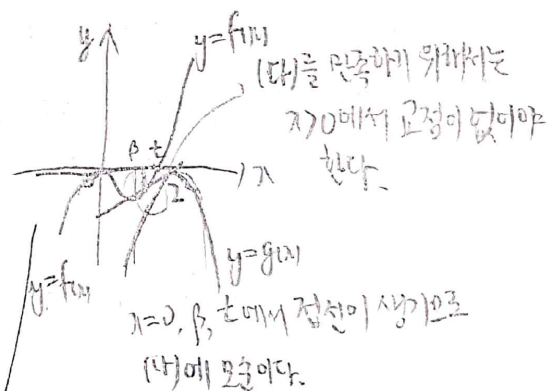 y
y=f(x)
(다)를 만족하기 위해서는
x>0에서 교점이 없어야
한다.
β t
x
2
y=g(x)
y=f(x)
x=0, β, t에서 접선이 생기므로
(나)에 모순이다.